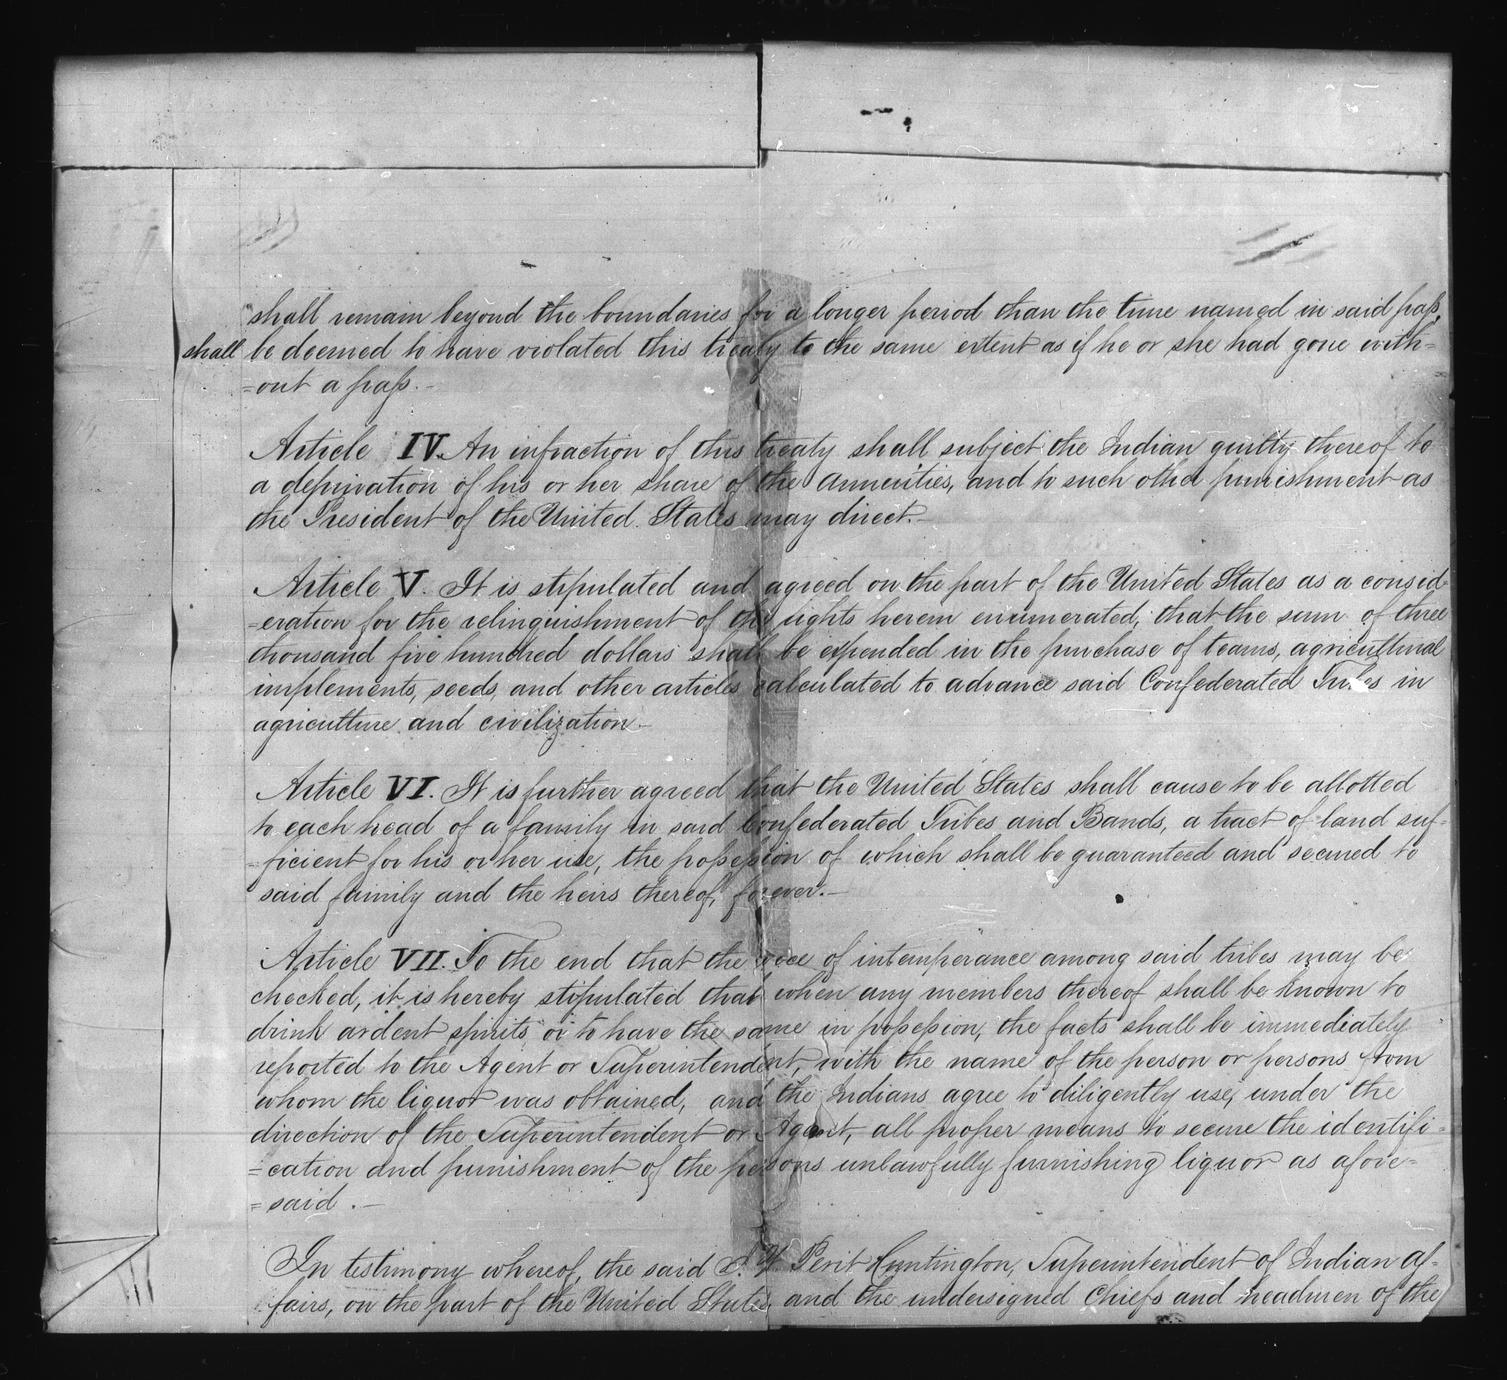 shall remain beyond the boundaries for a longer period than the time named in said pass,
shall be deemed to have violated this treaty to the same extent as if he or she had gone with=
=out a pass.-
Article IV. An infraction of this treaty shall subject the Indian guilty thereof to
a deprivation of his or her share of the annuities, and to such other punishment as
the President of the United States may direct.-
Article V. It is stipulated and agreed on the part of the United States as a consid=
=eration for the relinquishment of the rights herein enumerated, that the sum of three
thousand five hundred dollars shall be expended in the purchase of teams, agricultural
implements, seeds, and other articles calculated to advance said Confederated Tribes in
agriculture and civilization-
Article VI. It is further agreed that the United States shall cause to be allotted
to each head of a family in said Confederated Tribes and Bands, a tract of land suf=
=ficient for his or her use, the possession of which shall be guaranteed and secured to
said family and the heirs thereof, forever.-
Article VII. To the end that the vice of intemperance among said tribes may be
checked, it is hereby stipulated that when any members thereof shall be known to
drink ardent spirits or to have the same in possession, the facts shall be immediately
reported to the Agent or Superintendent, with the name of the person or persons from
whom the liquor was obtained, and the Indians agree to diligently use, under the
direction of the Superintendent or Agent, all proper means to secure the identifi=
=cation and punishment of the persons unlawfully furnishing liquor as afore=
=said.-
In testimony whereof, the said J. W. Perit Huntington, Superintendent of Indian af=
fairs, on the part of the United States, and the undersigned Chiefs and headmen of the